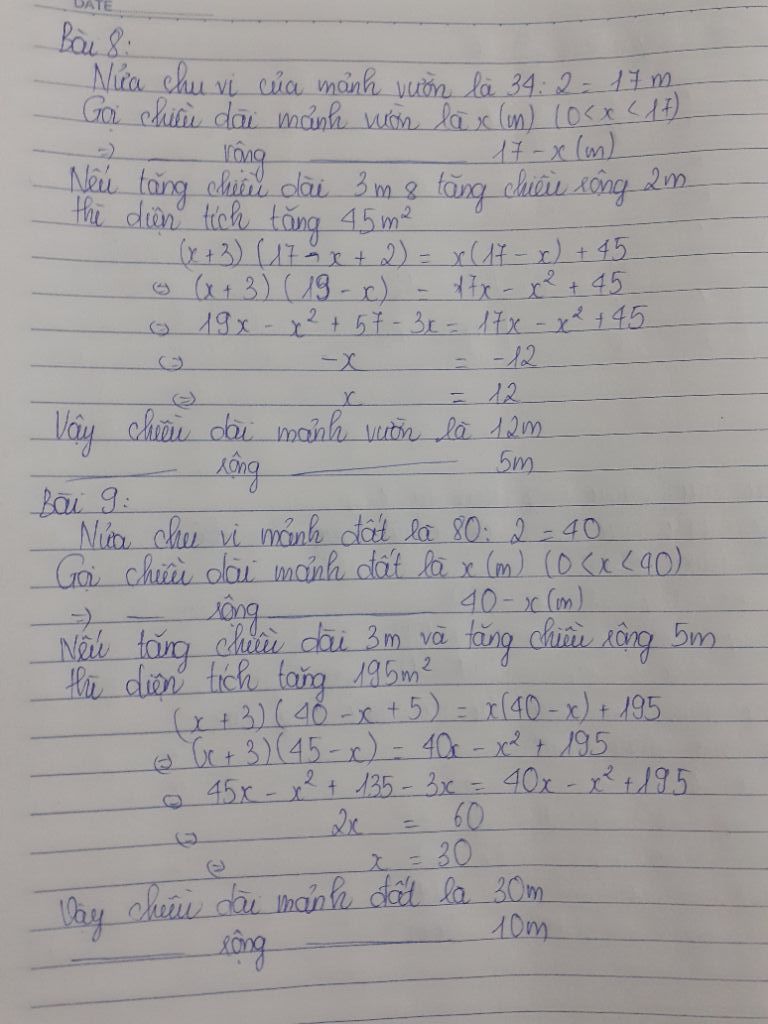 DATE
Bài 8:
Nửa chu vi của mảnh vườn là 34 : 2 = 17 m
Gọi chiều dài mảnh vườn là x (m) (0 < x < 17)
=> — rộng — 17 - x (m)
Nếu tăng chiều dài 3m & tăng chiều rộng 2m
thì diện tích tăng 45m²
(x + 3) (17 - x + 2) = x(17 - x) + 45
<=> (x + 3) (19 - x) = 17x - x² + 45
<=> 19x - x² + 57 - 3x = 17x - x² + 45
<=> -x = -12
<=> x = 12
Vậy chiều dài mảnh vườn là 12m
— rộng — 5m
Bài 9:
Nửa chu vi mảnh đất là 80 : 2 = 40
Gọi chiều dài mảnh đất là x (m) (0 < x < 40)
=> — rộng — 40 - x (m)
Nếu tăng chiều dài 3m và tăng chiều rộng 5m
thì diện tích tăng 195m²
(x + 3) (40 - x + 5) = x(40 - x) + 195
<=> (x + 3) (45 - x) = 40x - x² + 195
<=> 45x - x² + 135 - 3x = 40x - x² + 195
<=> 2x = 60
<=> x = 30
Vậy chiều dài mảnh đất là 30m
— rộng — 10m